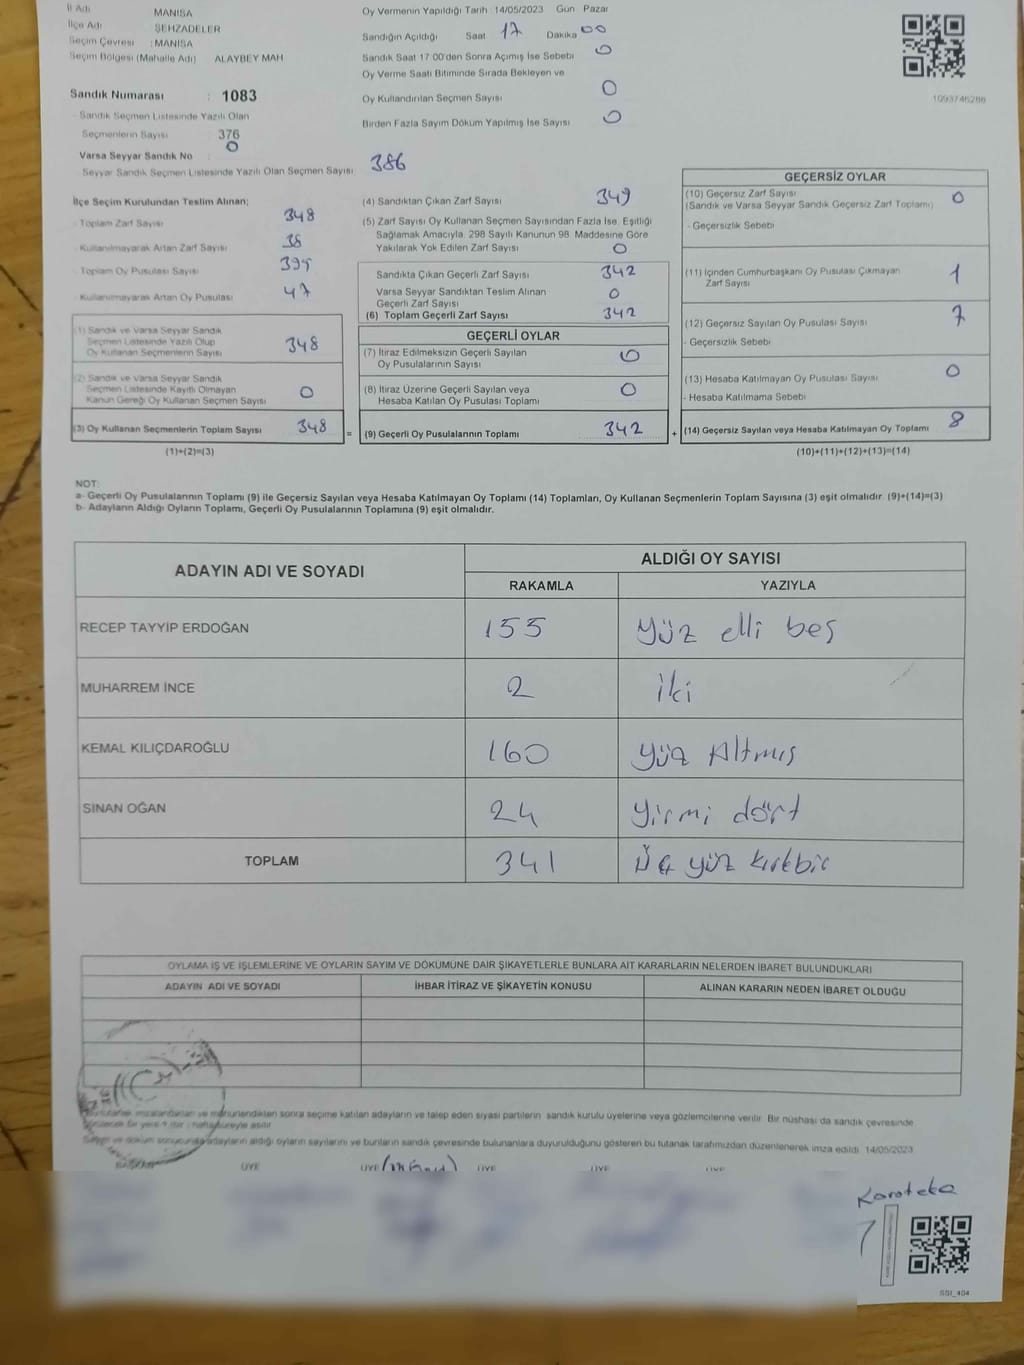 İl Adı MANİSA
İlçe Adı ŞEHZADELER
Seçim Çevresi : MANİSA
Seçim Bölgesi (Mahalle Adı) ALAYBEY MAH
Sandık Numarası : 1083
- Sandık Seçmen Listesinde Yazılı Olan
Seçmenlerin Sayısı 376
Varsa Seyyar Sandık No 0
- Seyyar Sandık Seçmen Listesinde Yazılı Olan Seçmen Sayısı 386
Oy Vermenin Yapıldığı Tarih : 14/05/2023 Gün Pazar
Sandığın Açıldığı Saat 17 Dakika 00
Sandık Saat 17:00'den Sonra Açımış İse Sebebi 0
Oy Verme Saati Bitiminde Sırada Bekleyen ve
Oy Kullandırılan Seçmen Sayısı 0
Birden Fazla Sayım Döküm Yapılmış İse Sayısı 0
1093746286
İlçe Seçim Kurulundan Teslim Alınan;
- Toplam Zarf Sayısı 348
- Kullanılmayarak Artan Zarf Sayısı 38
- Toplam Oy Pusulası Sayısı 395
- Kullanılmayarak Artan Oy Pusulası 47
(1) Sandık ve Varsa Seyyar Sandık
Seçmen Listesinde Yazılı Olup
Oy Kullanan Seçmenlerin Sayısı 348
(2) Sandık ve Varsa Seyyar Sandık
Seçmen Listesinde Kayıtlı Olmayan
Kanun Gereği Oy Kullanan Seçmen Sayısı 0
(3) Oy Kullanan Seçmenlerin Toplam Sayısı 348
(1)+(2)=(3)
(4) Sandıktan Çıkan Zarf Sayısı 349
(5) Zarf Sayısı Oy Kullanan Seçmen Sayısından Fazla İse, Eşitliği
Sağlamak Amacıyla, 298 Sayılı Kanunun 98. Maddesine Göre
Yakılarak Yok Edilen Zarf Sayısı 0
Sandıkta Çıkan Geçerli Zarf Sayısı 342
Varsa Seyyar Sandıktan Teslim Alınan
Geçerli Zarf Sayısı 0
(6) Toplam Geçerli Zarf Sayısı 342
GEÇERLİ OYLAR
(7) İtiraz Edilmeksizin Geçerli Sayılan
Oy Pusulalarının Sayısı 0
(8) İtiraz Üzerine Geçerli Sayılan veya
Hesaba Katılan Oy Pusulası Toplamı 0
= (9) Geçerli Oy Pusulalarının Toplamı 342
GEÇERSİZ OYLAR
(10) Geçersiz Zarf Sayısı 0
(Sandık ve Varsa Seyyar Sandık Geçersiz Zarf Toplamı)
- Geçersizlik Sebebi
(11) İçinden Cumhurbaşkanı Oy Pusulası Çıkmayan
Zarf Sayısı 1
(12) Geçersiz Sayılan Oy Pusulası Sayısı 7
- Geçersizlik Sebebi
(13) Hesaba Katılmayan Oy Pusulası Sayısı 0
- Hesaba Katılmama Sebebi
+ (14) Geçersiz Sayılan veya Hesaba Katılmayan Oy Toplamı 8
(10)+(11)+(12)+(13)=(14)
NOT:
a- Geçerli Oy Pusulalarının Toplamı (9) ile Geçersiz Sayılan veya Hesaba Katılmayan Oy Toplamı (14) Toplamları, Oy Kullanan Seçmenlerin Toplam Sayısına (3) eşit olmalıdır. (9)+(14)=(3)
b- Adayların Aldığı Oyların Toplamı, Geçerli Oy Pusulalarının Toplamına (9) eşit olmalıdır.
ADAYIN ADI VE SOYADI ALDIĞI OY SAYISI
RAKAMLA YAZIYLA
RECEP TAYYİP ERDOĞAN 155 Yüz elli beş
MUHARREM İNCE 2 iki
KEMAL KILIÇDAROĞLU 160 yüz Altmış
SİNAN OĞAN 24 yirmi dört
TOPLAM 341 Üç yüz kırkbir
OYLAMA İŞ VE İŞLEMLERİNE VE OYLARIN SAYIM VE DÖKÜMÜNE DAİR ŞİKAYETLERLE BUNLARA AİT KARARLARIN NELERDEN İBARET BULUNDUKLARI
ADAYIN ADI VE SOYADI İHBAR İTİRAZ VE ŞİKAYETİN KONUSU ALINAN KARARIN NEDEN İBARET OLDUĞU
imzalandıktan ve mühürlendikten sonra seçime katılan adayların ve talep eden siyasi partilerin sandık kurulu üyelerine veya gözlemcilerine verilir. Bir nüshası da sandık çevresinde
asılır
Sayım ve döküm sonucunda adayların aldığı oyların sayılarını ve bunların sandık çevresinde bulunanlara duyurulduğunu gösteren bu tutanak tarafımızdan düzenlenerek imza edildi. 14/05/2023
BAŞKAN ÜYE ÜYE ÜYE ÜYE ÜYE
Karateke
SSI_404